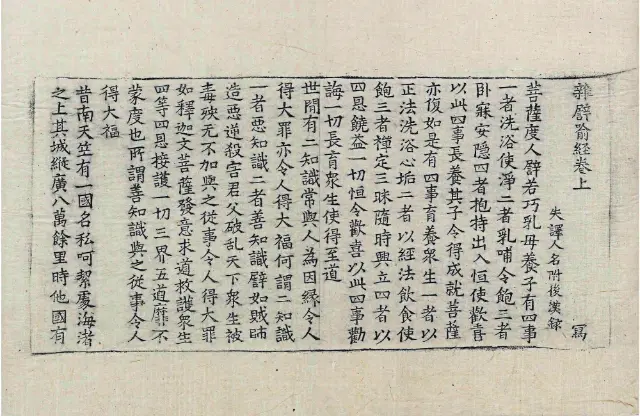 雜譬喻經卷上
失譯人名附後漢錄 寫
菩薩度人譬若巧乳母養子有四事
一者洗浴使淨二者乳哺令飽三者
卧寐安隱四者抱持出入恒使歡喜
以此四事長養其子令得成就菩薩
亦復如是有四事育養衆生一者以
正法洗浴心垢二者以經法飲食使
飽三者禪定三昧隨時興立四者以
四恩饒益一切恒令歡喜以此四事勸
誨一切長育衆生使得至道
世閒有二知識常與人為因緣令人
得大罪亦令人得大福何謂二知識
一者惡知識二者善知識譬如賊師
造惡逆殺害君父破乱天下衆生被
毒殃无不加與之從事令人得大罪
如釋迦文菩薩發意求道救護衆生
四等四恩接護一切三界五道靡不
蒙度也所謂善知識與之從事令人
得大福
昔南天竺有一國名私呵絜處海渚
之上其城縱廣八萬餘里時他國有